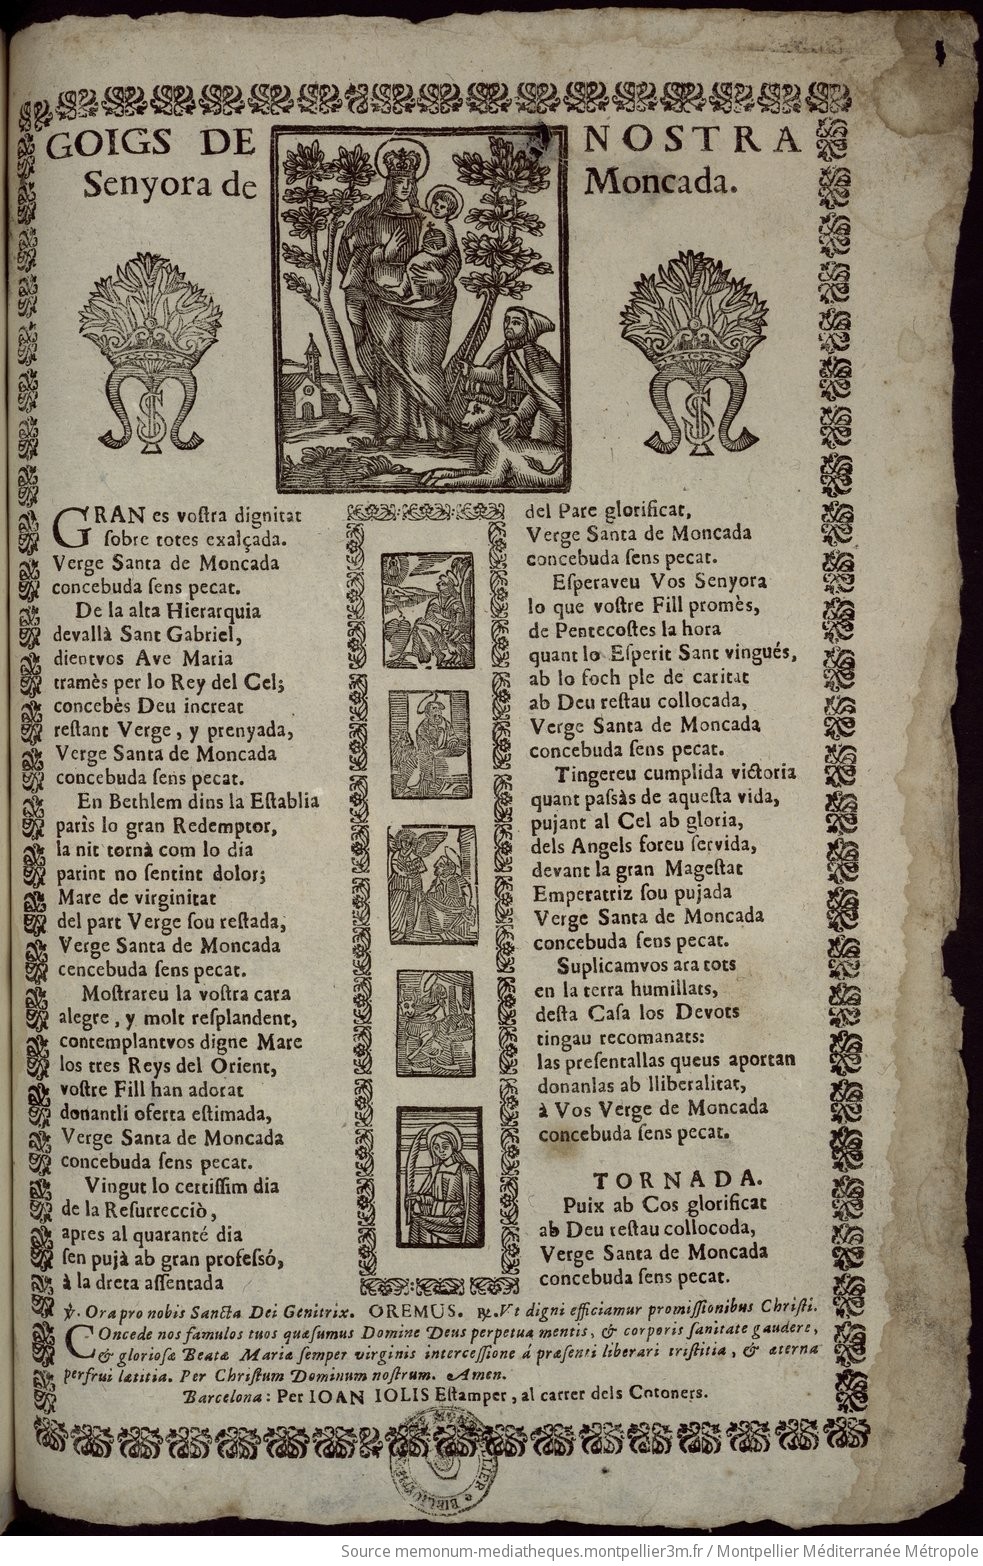 GOIGS DE NOSTRA
Senyora de Moncada.
GRAN es vostra dignitat
sobre totes exalçada.
Verge Santa de Moncada
concebuda sens pecat.
De la alta Hierarquia
devallà Sant Gabriel,
dientvos Ave Maria
tramès per lo Rey del Cel;
concebès Deu increat
restant Verge, y prenyada,
Verge Santa de Moncada
concebuda sens pecat.
En Bethlem dins la Establia
parìs lo gran Redemptor,
la nit tornà com lo dia
parint no sentint dolor;
Mare de virginitat
del part Verge sou restada,
Verge Santa de Moncada
cencebuda sens pecat.
Mostrareu la vostra cara
alegre, y molt resplandent,
contemplantvos digne Mare
los tres Reys del Orient,
vostre Fill han adorat
donantli oferta estimada,
Verge Santa de Moncada
concebuda sens pecat.
Vingut lo certissim dia
de la Resurrecciò,
apres al quaranté dia
sen pujà ab gran professó,
à la dreta assentada
del Pare glorificat,
Verge Santa de Moncada
concebuda sens pecat.
Esperaveu Vos Senyora
lo que vostre Fill promès,
de Pentecostes la hora
quant lo Esperit Sant vingués,
ab lo foch ple de caritat
ab Deu restau collocada,
Verge Santa de Moncada
concebuda sens pecat.
Tingereu cumplida victoria
quant passàs de aquesta vida,
pujant al Cel ab gloria,
dels Angels foreu servida,
devant la gran Magestat
Emperatriz sou pujada
Verge Santa de Moncada
concebuda sens pecat.
Suplicamvos ara tots
en la terra humillats,
desta Casa los Devots
tingau recomanats:
las presentallas queus aportan
donanlas ab lliberalitat,
à Vos Verge de Moncada
concebuda sens pecat.
TORNADA.
Puix ab Cos glorificat
ab Deu restau collocoda,
Verge Santa de Moncada
concebuda sens pecat.
℣. Ora pro nobis Sancta Dei Genitrix. OREMUS. ℟. Vt digni efficiamur promissionibus Christi.
COncede nos famulos tuos quæsumus Domine Deus perpetua mentis, & corporis sanitate gaudere,
& gloriosæ Beatæ Mariæ semper virginis intercessione á præsenti liberari tristitia, & æterna
perfrui lætitia. Per Christum Dominum nostrum. Amen.
Barcelona: Per IOAN IOLIS Estamper, al carrer dels Cotoners.
Source memonum-mediatheques.montpellier3m.fr / Montpellier Méditerranée Métropole